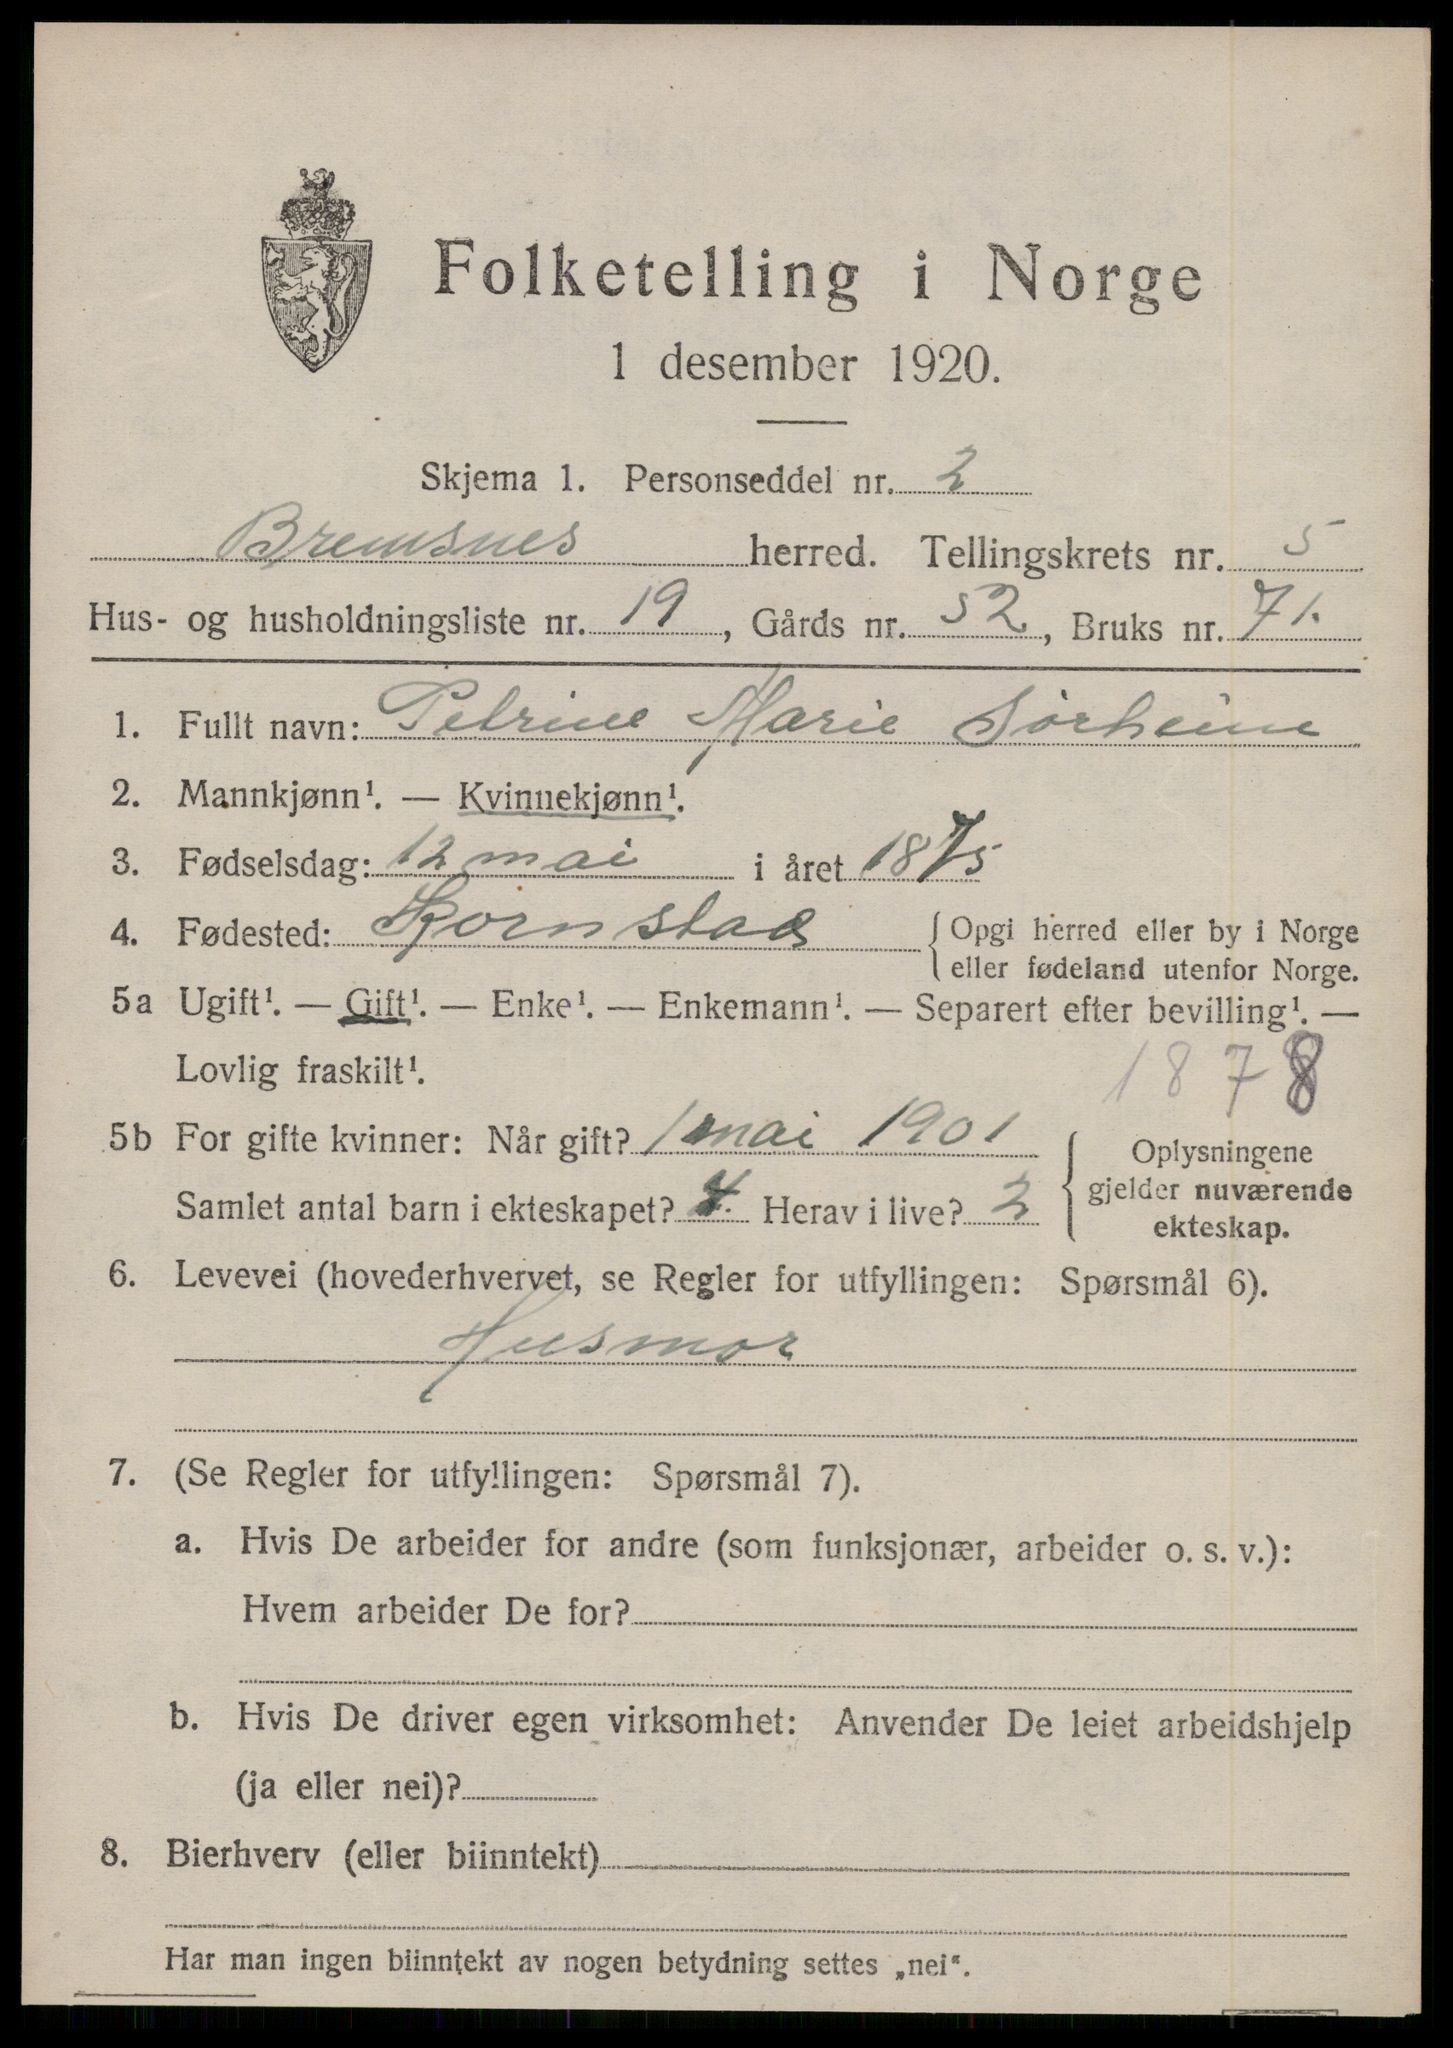 Folketelling i Norge
1 desember 1920.
Skjema 1. Personseddel nr. 2
Bremsnes herred. Tellingskrets nr. 5
Hus- og husholdningsliste nr. 19, Gårds nr. 52, Bruks nr. 71.
1. Fullt navn: Petrine Marie Sørheim
2. Mannkjønn¹. — Kvinnekjønn¹.
3. Fødselsdag: 12 mai i året 1875
4. Fødested: Kornstad { Opgi herred eller by i Norge
eller fødeland utenfor Norge.
5a Ugift¹. — Gift¹. — Enke¹. — Enkemann¹. — Separert efter bevilling¹. —
Lovlig fraskilt¹. 1878
5b For gifte kvinner: Når gift? 1 mai 1901 { Oplysningene
gjelder nuværende
Samlet antal barn i ekteskapet? 4. Herav i live? 2 ekteskap.
6. Levevei (hovederhvervet, se Regler for utfyllingen: Spørsmål 6).
Husmor
7. (Se Regler for utfyllingen: Spørsmål 7).
a. Hvis De arbeider for andre (som funksjonær, arbeider o. s. v.):
Hvem arbeider De for?
b. Hvis De driver egen virksomhet: Anvender De leiet arbeidshjelp
(ja eller nei)?
8. Bierhverv (eller biinntekt)
Har man ingen biinntekt av nogen betydning settes „nei“.